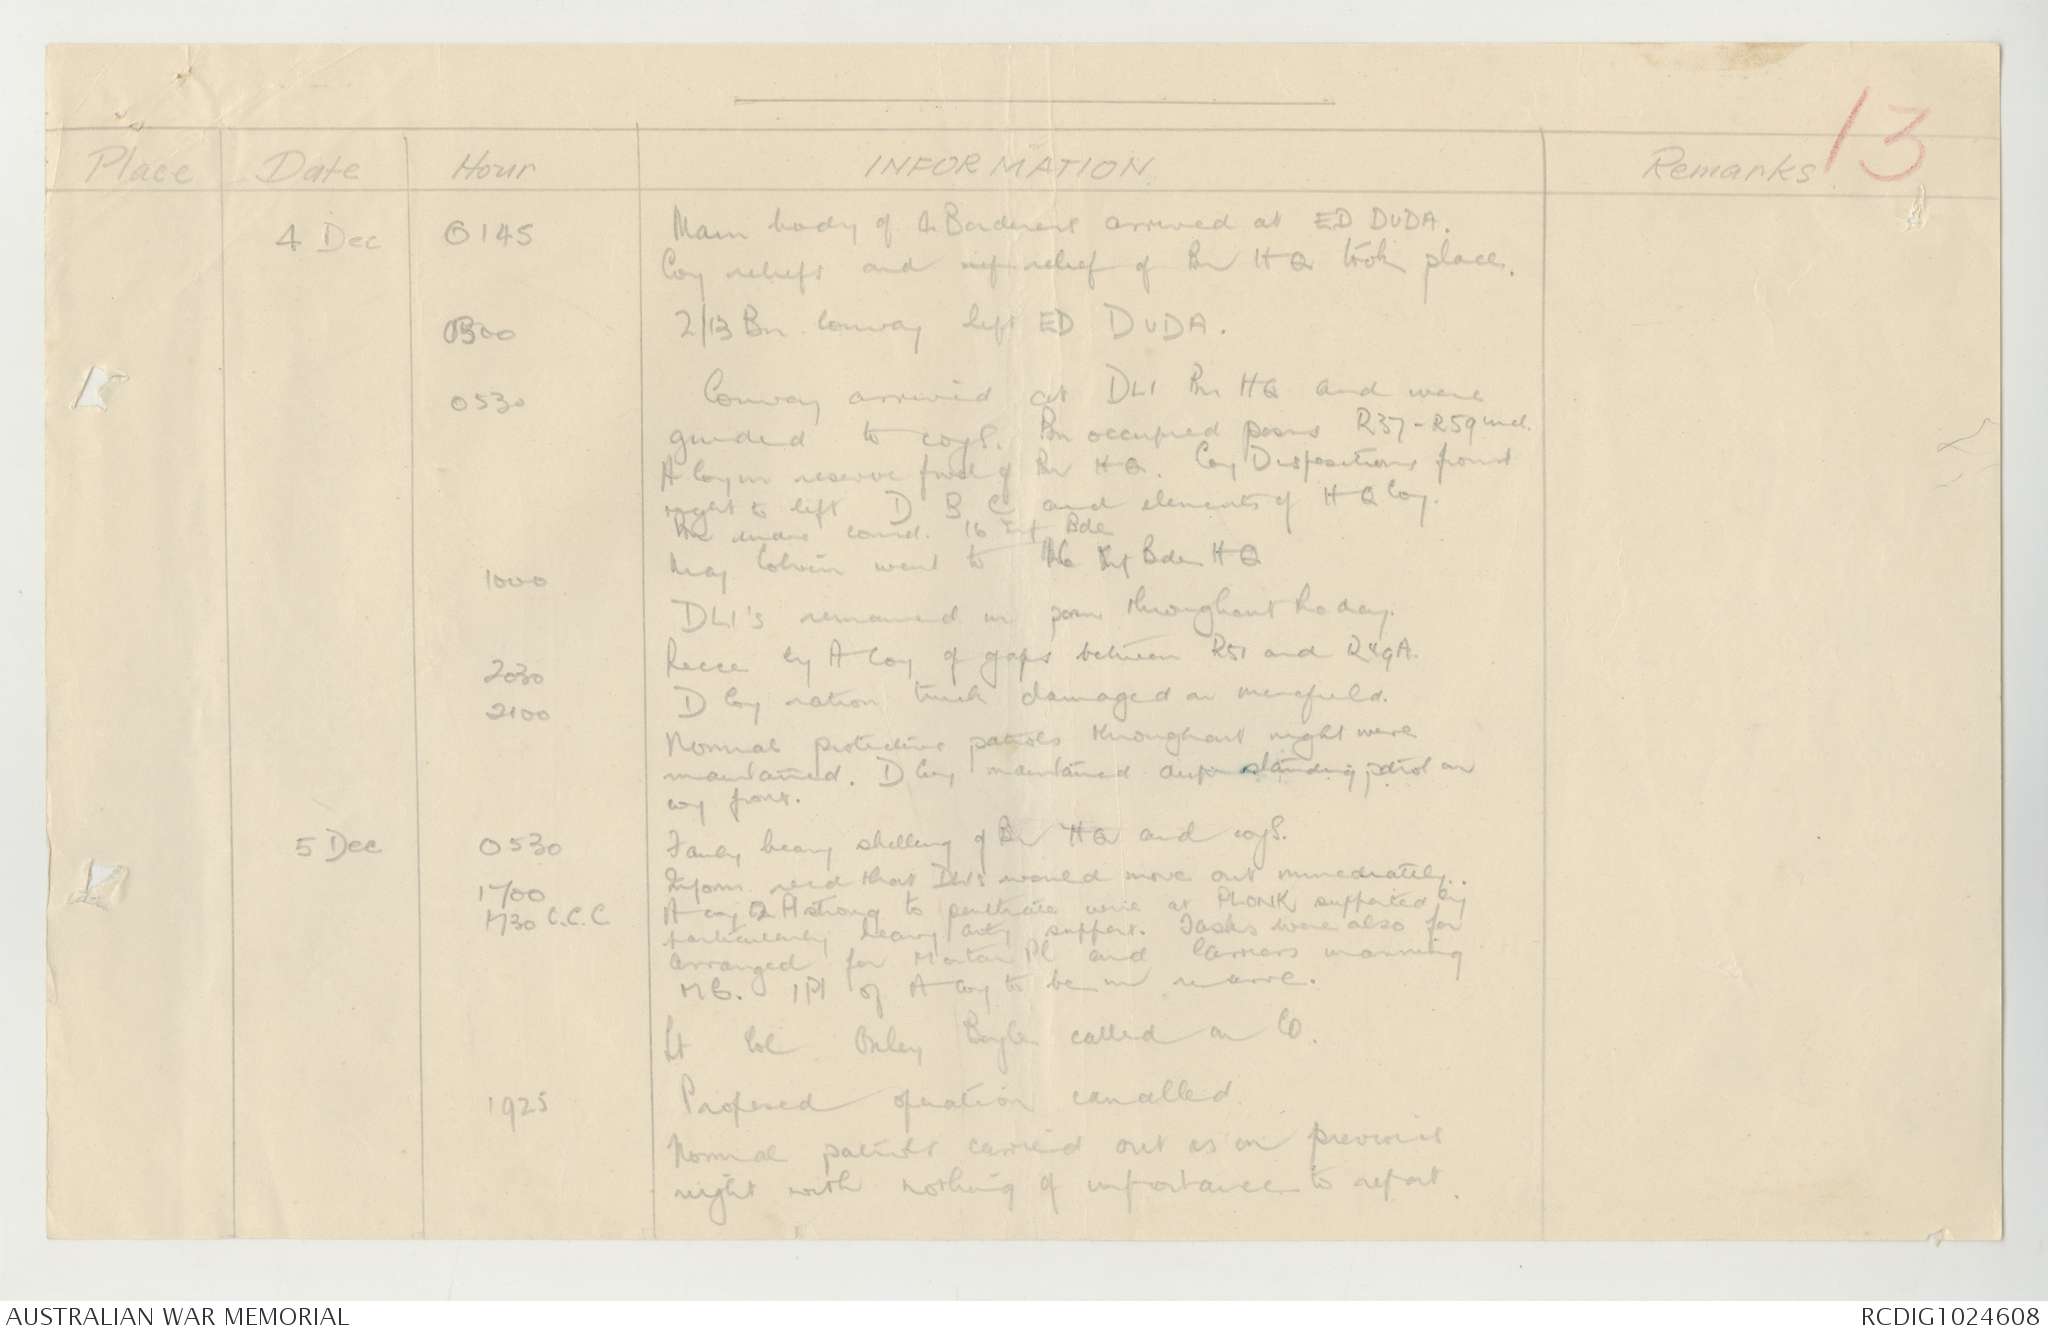 13
Place Date Hour INFORMATION Remarks
4 Dec 0145 Main body of Borderers arrived at ED DUDA.
Coy reliefs and relief of Bn HQ took place.
0300 2/13 Bn Convoy left ED DUDA.
0530 Convoy arrived at DLI Bn HQ and were
guided to coys. Bn occupied posns R37-R59 incl.
A Coy in reserve fwd of Bn HQ. Coy Dispositions from
right to left D B C and elements of HQ Coy.
Bn under comd. 16 Inf Bde
1000 Maj Colvin went to 16 Inf Bde HQ
DLI's remained in posn throughout the day.
2030 Recce by A Coy of gaps between R51 and R49A.
2100 D Coy ration truck damaged on minefield.
Normal protective patrols throughout night were
maintained. D Coy maintained standing patrol on
coy front.
5 Dec 0530 Fairly heavy shelling of Bn HQ and coys.
1700 Inform. recd that DLI's would move out immediately.
1730 C.C.C A coy strong to penetrate wire at PLONK supported by
particularly heavy arty support. Tasks were also for
arranged for Mortar Pl and Carriers manning
MG. 1 Pl of A coy to be in reserve.
Lt Col Oxley Boyle called on CO.
1925 Proposed operation cancelled.
Normal patrols carried out as on previous
night with nothing of importance to report.
AUSTRALIAN WAR MEMORIAL RCDIG1024608